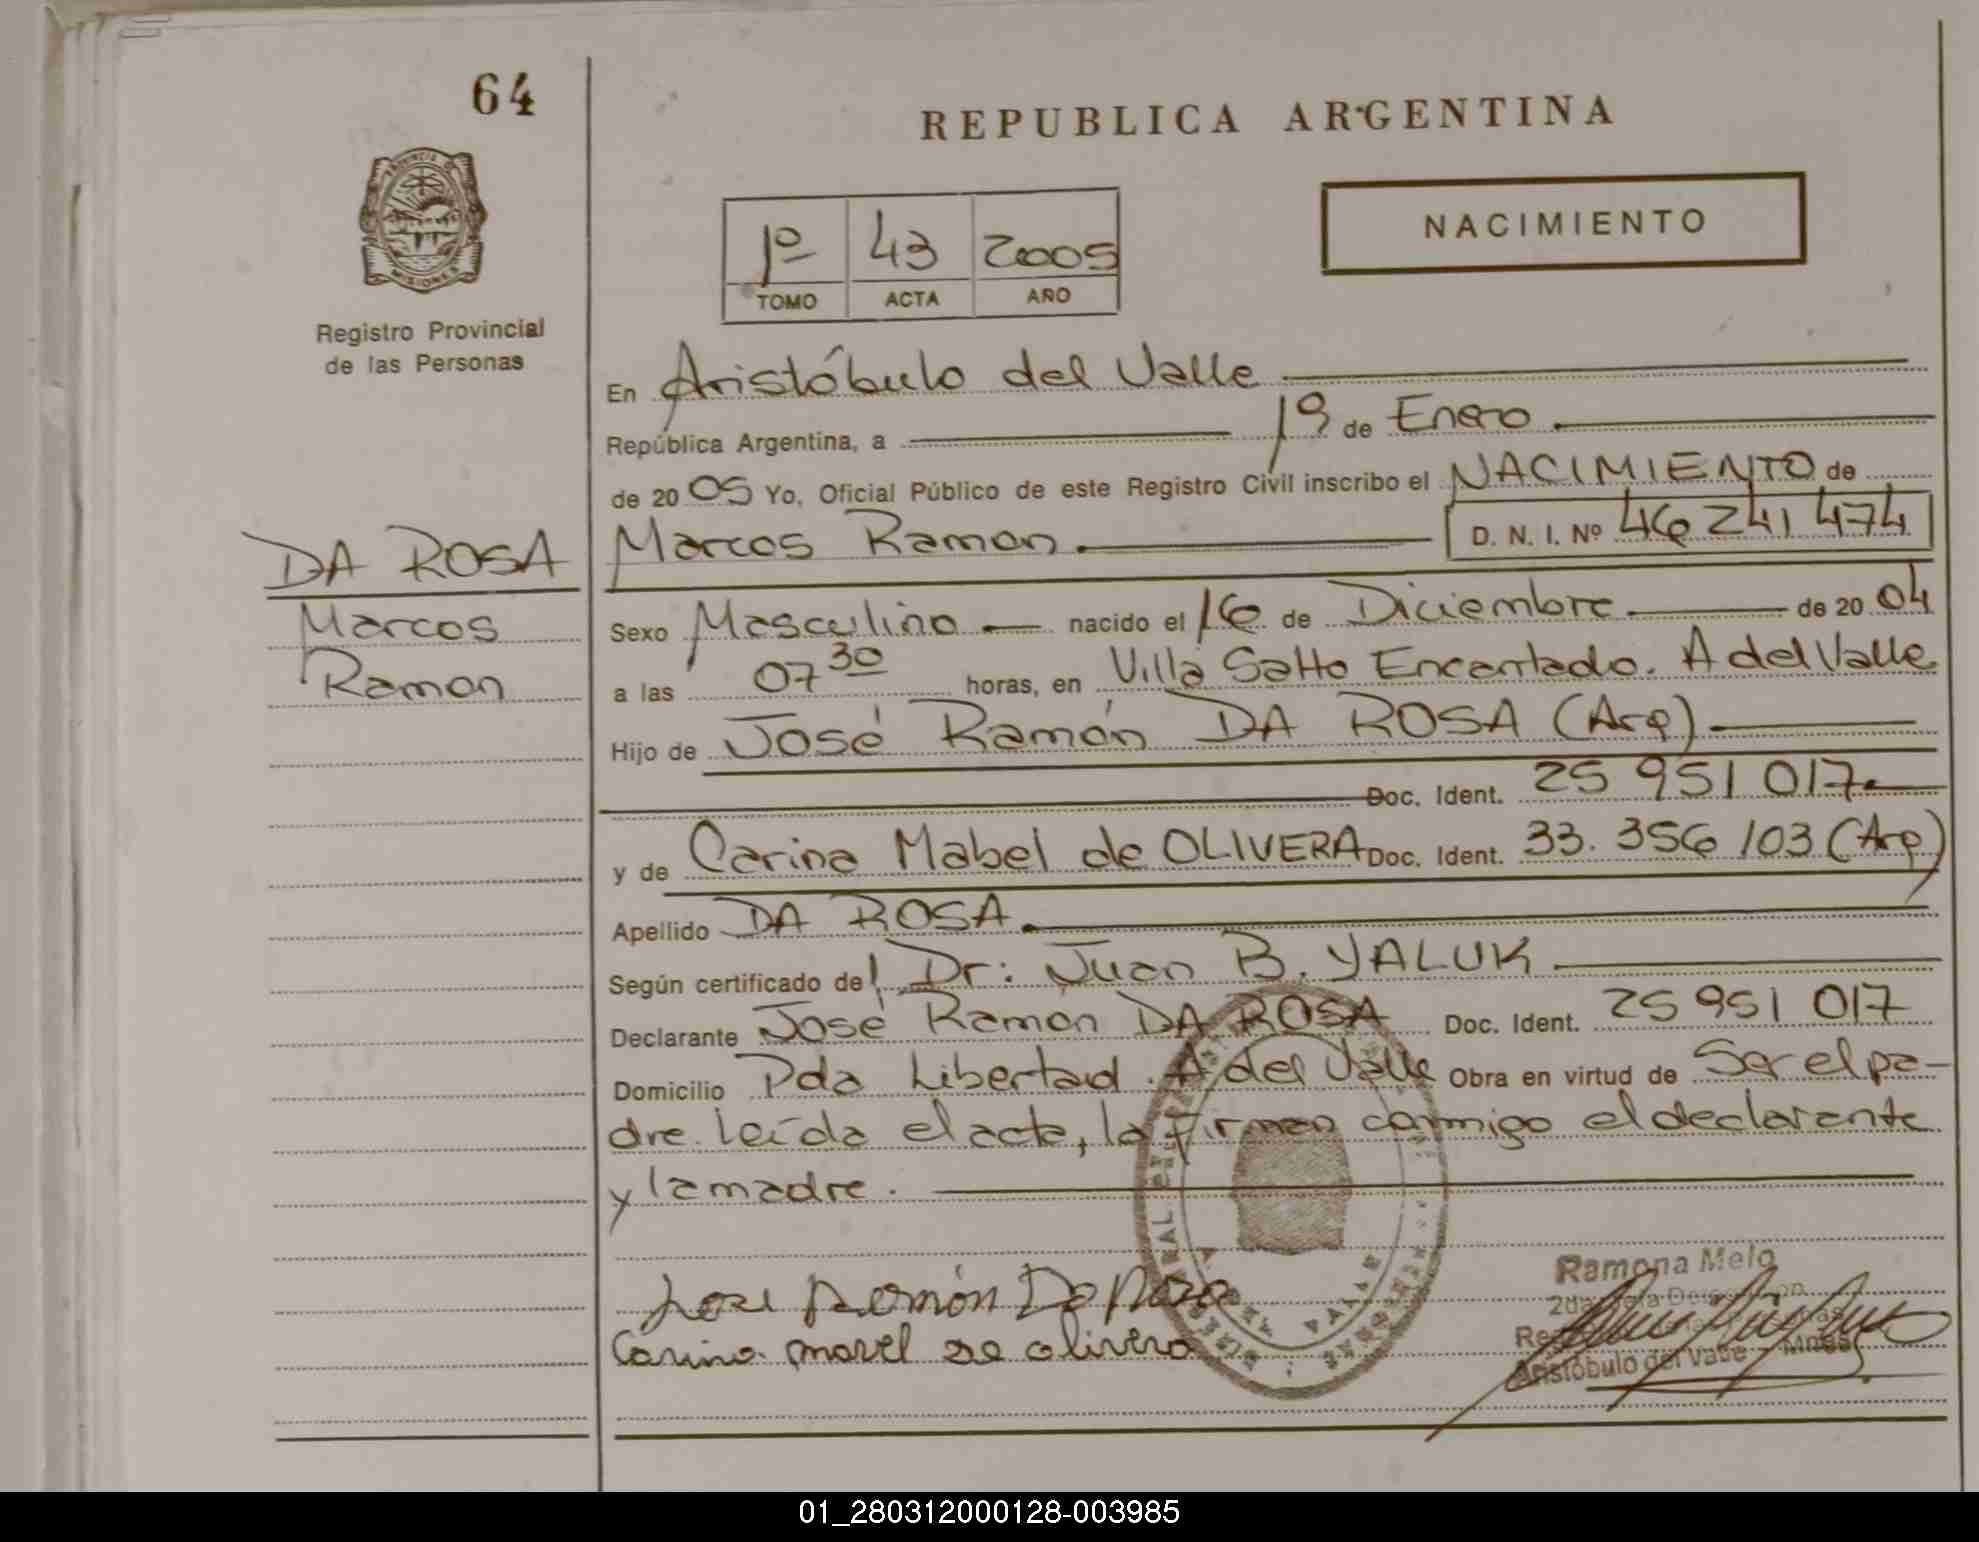 64
REPUBLICA ARGENTINA
NACIMIENTO
1º 43 2005
TOMO ACTA AÑO
PROVINCIA DE
MISIONES
Registro Provincial
de las Personas
En Aristóbulo del Valle
República Argentina, a 19 de Enero
de 2005 Yo, Oficial Público de este Registro Civil inscribo el NACIMIENTO de
Marcos Ramon D. N. I. Nº 46 241 474
DA ROSA
Marcos
Ramon
Sexo Masculino nacido el 16 de Diciembre de 2004
a las 07 30 horas, en Villa Salto Encantado. A del Valle
Hijo de José Ramón DA ROSA (Arg)
Doc. Ident. 25 951 017
y de Carina Mabel de OLIVERA Doc. Ident. 33.356 103 (Arg)
Apellido DA ROSA
Según certificado del Dr: Juan B. YALUK
Declarante José Ramon DA ROSA Doc. Ident. 25 951 017
Domicilio Pda Libertad. A del Valle Obra en virtud de Ser el pa-
dre. Leída el acta, la firman conmigo el declarante
y la madre.
Jose Ramón Da Rosa
Carina mavel de olivera
Ramona Melo
2da
Aristóbulo del Valle - Mnes
01_280312000128-003985